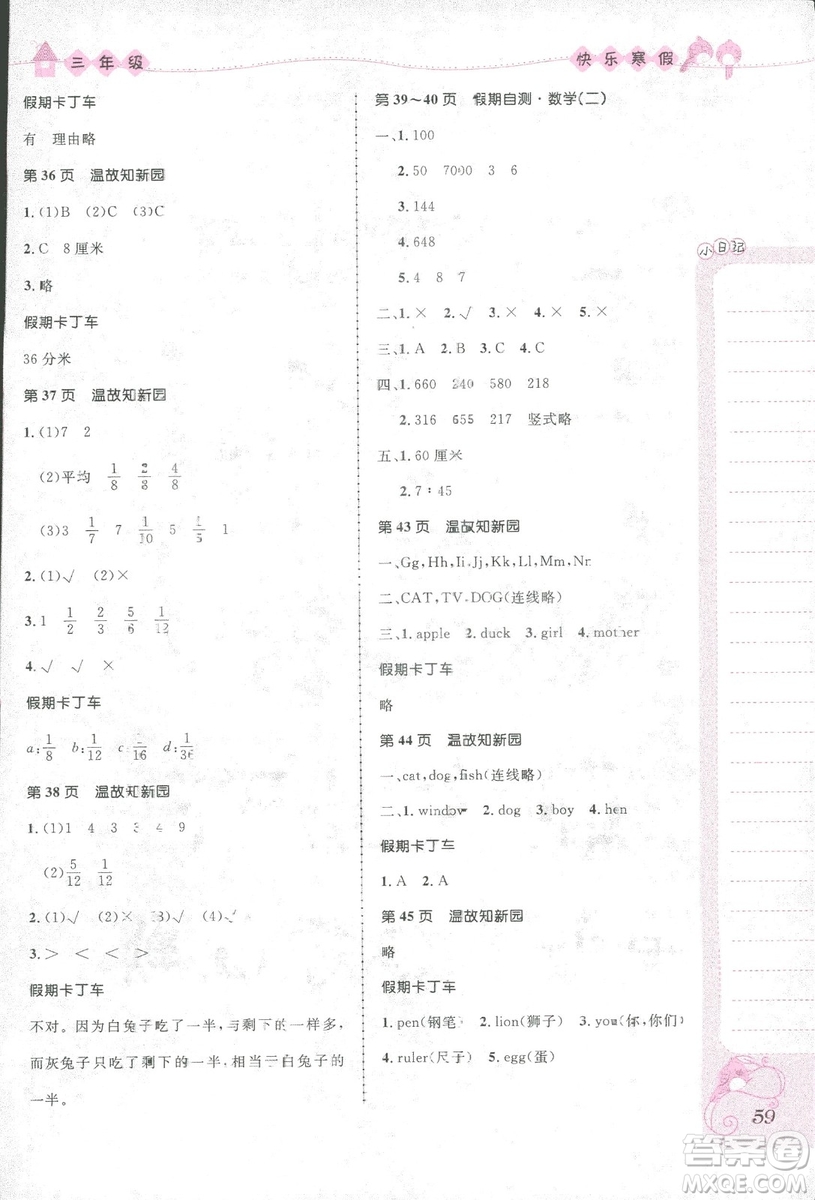 三年级
快乐寒假
假期卡丁车
有 理由略
第36页 温故知新园
1.(1)B (2)C (3)C
2.C 8厘米
3.略
假期卡丁车
36分米
第37页 温故知新园
1.(1)7 2
(2)平均 1/8 2/8 4/8
(3)3 1/7 7 1/10 5 1/5 1
2.(1)√ (2)×
3.1 1/2 2/3 5/6 1/12
4.√ √ ×
假期卡丁车
a:1/8 b:1/12 c:1/16 d:1/36
第38页 温故知新园
1.(1)1 4 3 4 9
(2)5/12 1/12
2.(1)√ (2)× (3)√ (4)√
3.> < < >
假期卡丁车
不对。因为白兔子吃了一半,与剩下的一样多,
而灰兔子只吃了剩下的一半,相当于白兔子的
一半。
第39～40页 假期自测·数学(二)
一、1.100
2.50 7000 3 6
3.144
4.648
5.4 8 7
二、1.× 2.√ 3.× 4.× 5.×
三、1.A 2.B 3.C 4.C
四、1.660 240 580 218
2.316 655 217 竖式略
五、1.60厘米
2.7:45
第43页 温故知新园
一、Gg,Hh,Ii,Jj,Kk,Ll,Mm,Nn
二、CAT,TV,DOG(连线略)
三、1.apple 2.duck 3.girl 4.mother
假期卡丁车
略
第44页 温故知新园
一、cat,dog,fish(连线略)
二、1.window 2.dog 3.boy 4.hen
假期卡丁车
1.A 2.A
第45页 温故知新园
略
假期卡丁车
1.pen(钢笔) 2.lion(狮子) 3.you(你,你们)
4.ruler(尺子) 5.egg(蛋)
小日记
59
答案圈
MXQE.COM